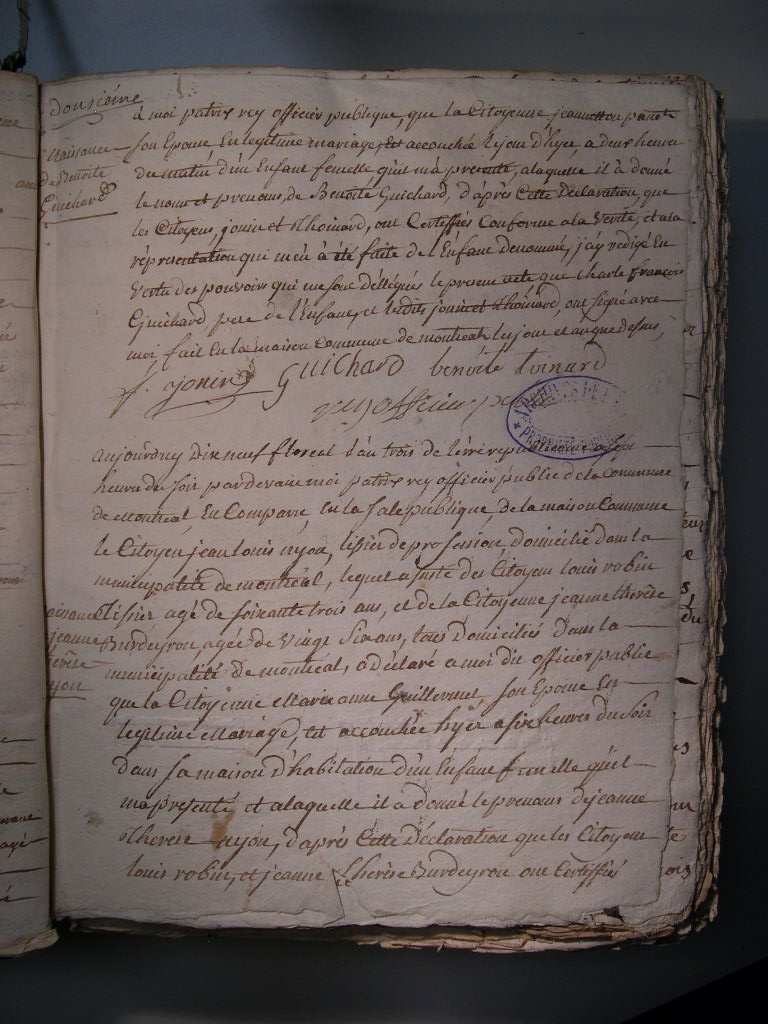 Dousième
à moi patris rey officier publique, que la Citoyenne jeanneton
Naissance
son Epouse En legitime mariage, Est accouchée lejour d'hyer, a deux heures
de Benoite
du matin d'un Enfant femelle qu'il ma presenté, alaquelle il à donné
Guichard
le nom et prenoms, de Benoite Guichard, d'après Cette Déclaration, que
les Citoyens, jonin et Thoinard, ont Certiffiés Conforme ala Verité, et ala
réprésentation qui m'eu à été faite de l'Enfant denommé, j'ay redigé En
Vertu des pouvoirs qui me sont déllégués le present acte que Charle françois
Guichard pere de l'Enfant, et lesdits jonin et Thoinard, ont signé avec
moi, fait En la maison commune de montréal les jour et an que dessus,
jonin Guichard benoité toinard
rey officier
ARCHIVES DE
aujourdhuy Dix neuf floreal l'an trois de l'érré republicaine a six
heures du soir pardevant moi patris rey officier public de la Commune
de Montréal, En Comparu, En la sale publique, de la maison Commune
le Citoyen jean louis nyon, tisier de profession, domicilié dans la
municipalité de montréal, lequel assisté des Citoyens louis robin
tisier agé de soixante trois ans, et de la Citoyenne jeanne therèse
jeanne
Burdeyron agée de Vingt six ans, tous Domiciliés Dans la
municipalité de montréal, a déclaré a moi dit officier public
que la Citoyenne Marie anne Guillermet, son Epouse En
legitime Mariage, Est accouchée hyer a six heures du soir
dans sa maison d'habitation d'un Enfant femelle qu'il
ma presenté et alaquelle il a donné le prenoms de jeanne
Therese nyon, d'après Cette Déclaration que les Citoyens
louis robin, et jeanne Therèse Burdeyron ont Certiffiés